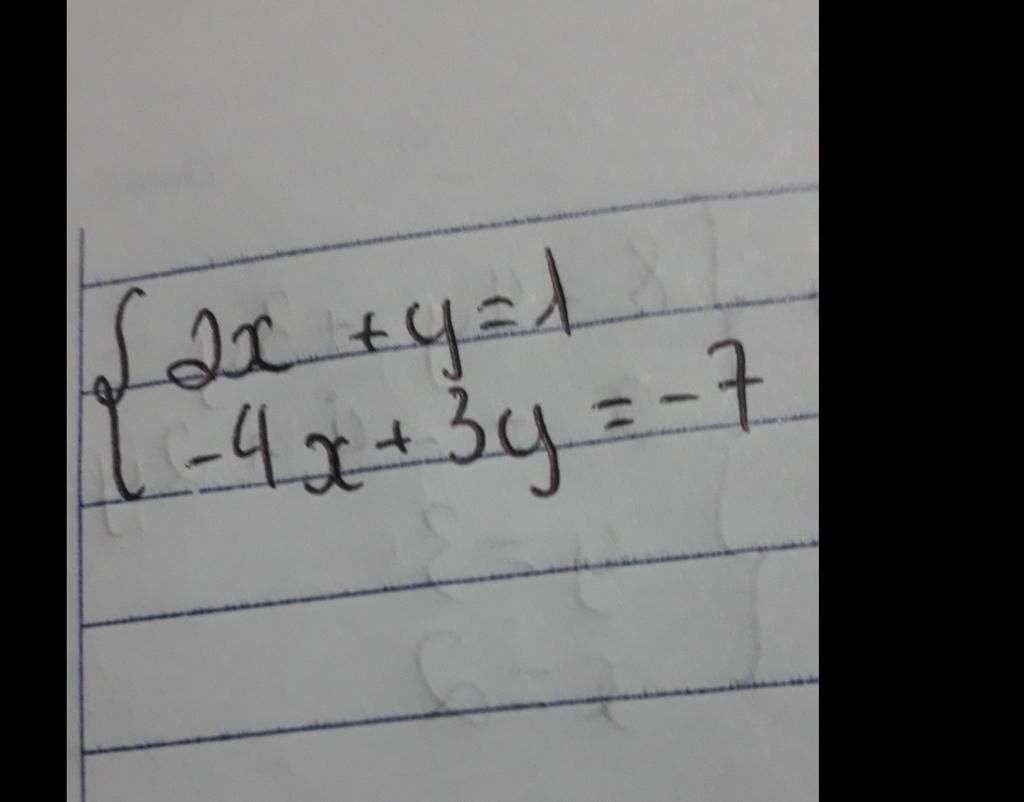 2x + y = 1
-4x + 3y = -7